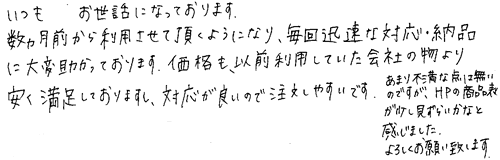 いつも お世話になっております。
数ヵ月前から利用させて頂くようになり、毎回迅速な対応・納品
に大変助かっております。価格も、以前利用していた会社の物より
安く満足しておりますし、対応が良いので注文しやすいです。
あまり不満な点は無い
のですが、HPの商品表
が少し見ずらいかなと
感じました。
よろしくお願い致します。